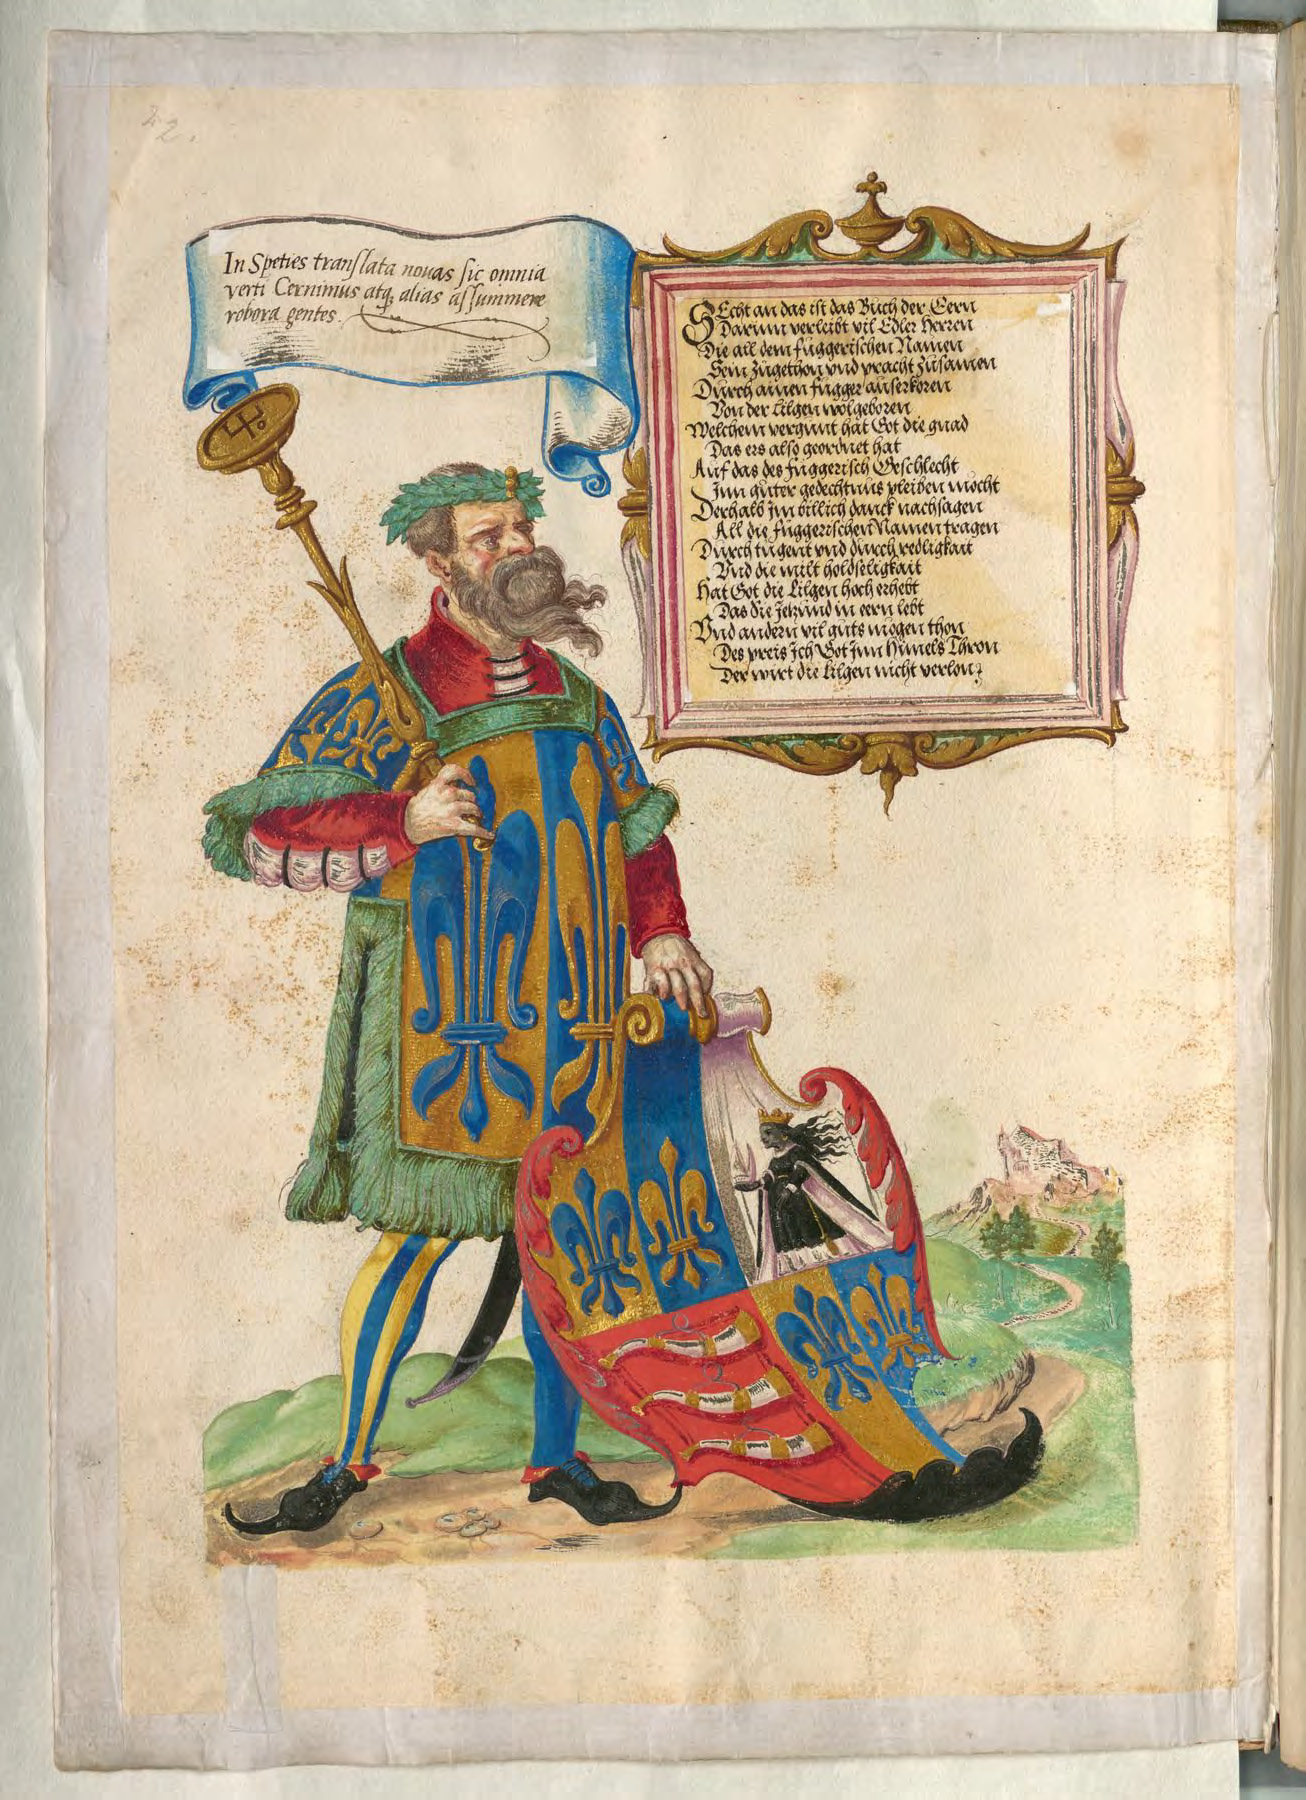 42.
In Speties translata nouas sic omnia
verti Cernimus atq, alias assummere
robora gentes.
SEcht an das ist das Buch der Eern
Darinn verleibt vil Edler Herren
Die all dem fuggerischen Namen
Sein zugethon vnd pracht zusamen
Durch ainen fugger auserkoren
Von der Lilgen wolgeboren
Welchem vergunt hat Got die gnad
Das ers also geordnet hat
Auf das des fuggerisch Geschlecht
Inn guter gedechtnus pleiben mocht
Derhalb im billich danck nachsagen
All die fuggerischen Namen tragen
Durch tugent vnd durch redligkait
Vnd die milt holdseligkait
Hat Got die Lilgen hoch erhebt
Das die jetzund in eern lebt
Vnd andern vil guts mogen thon
Des preis Ich Got Inn Himels Thron
Der wirt die Lilgen nicht verlon